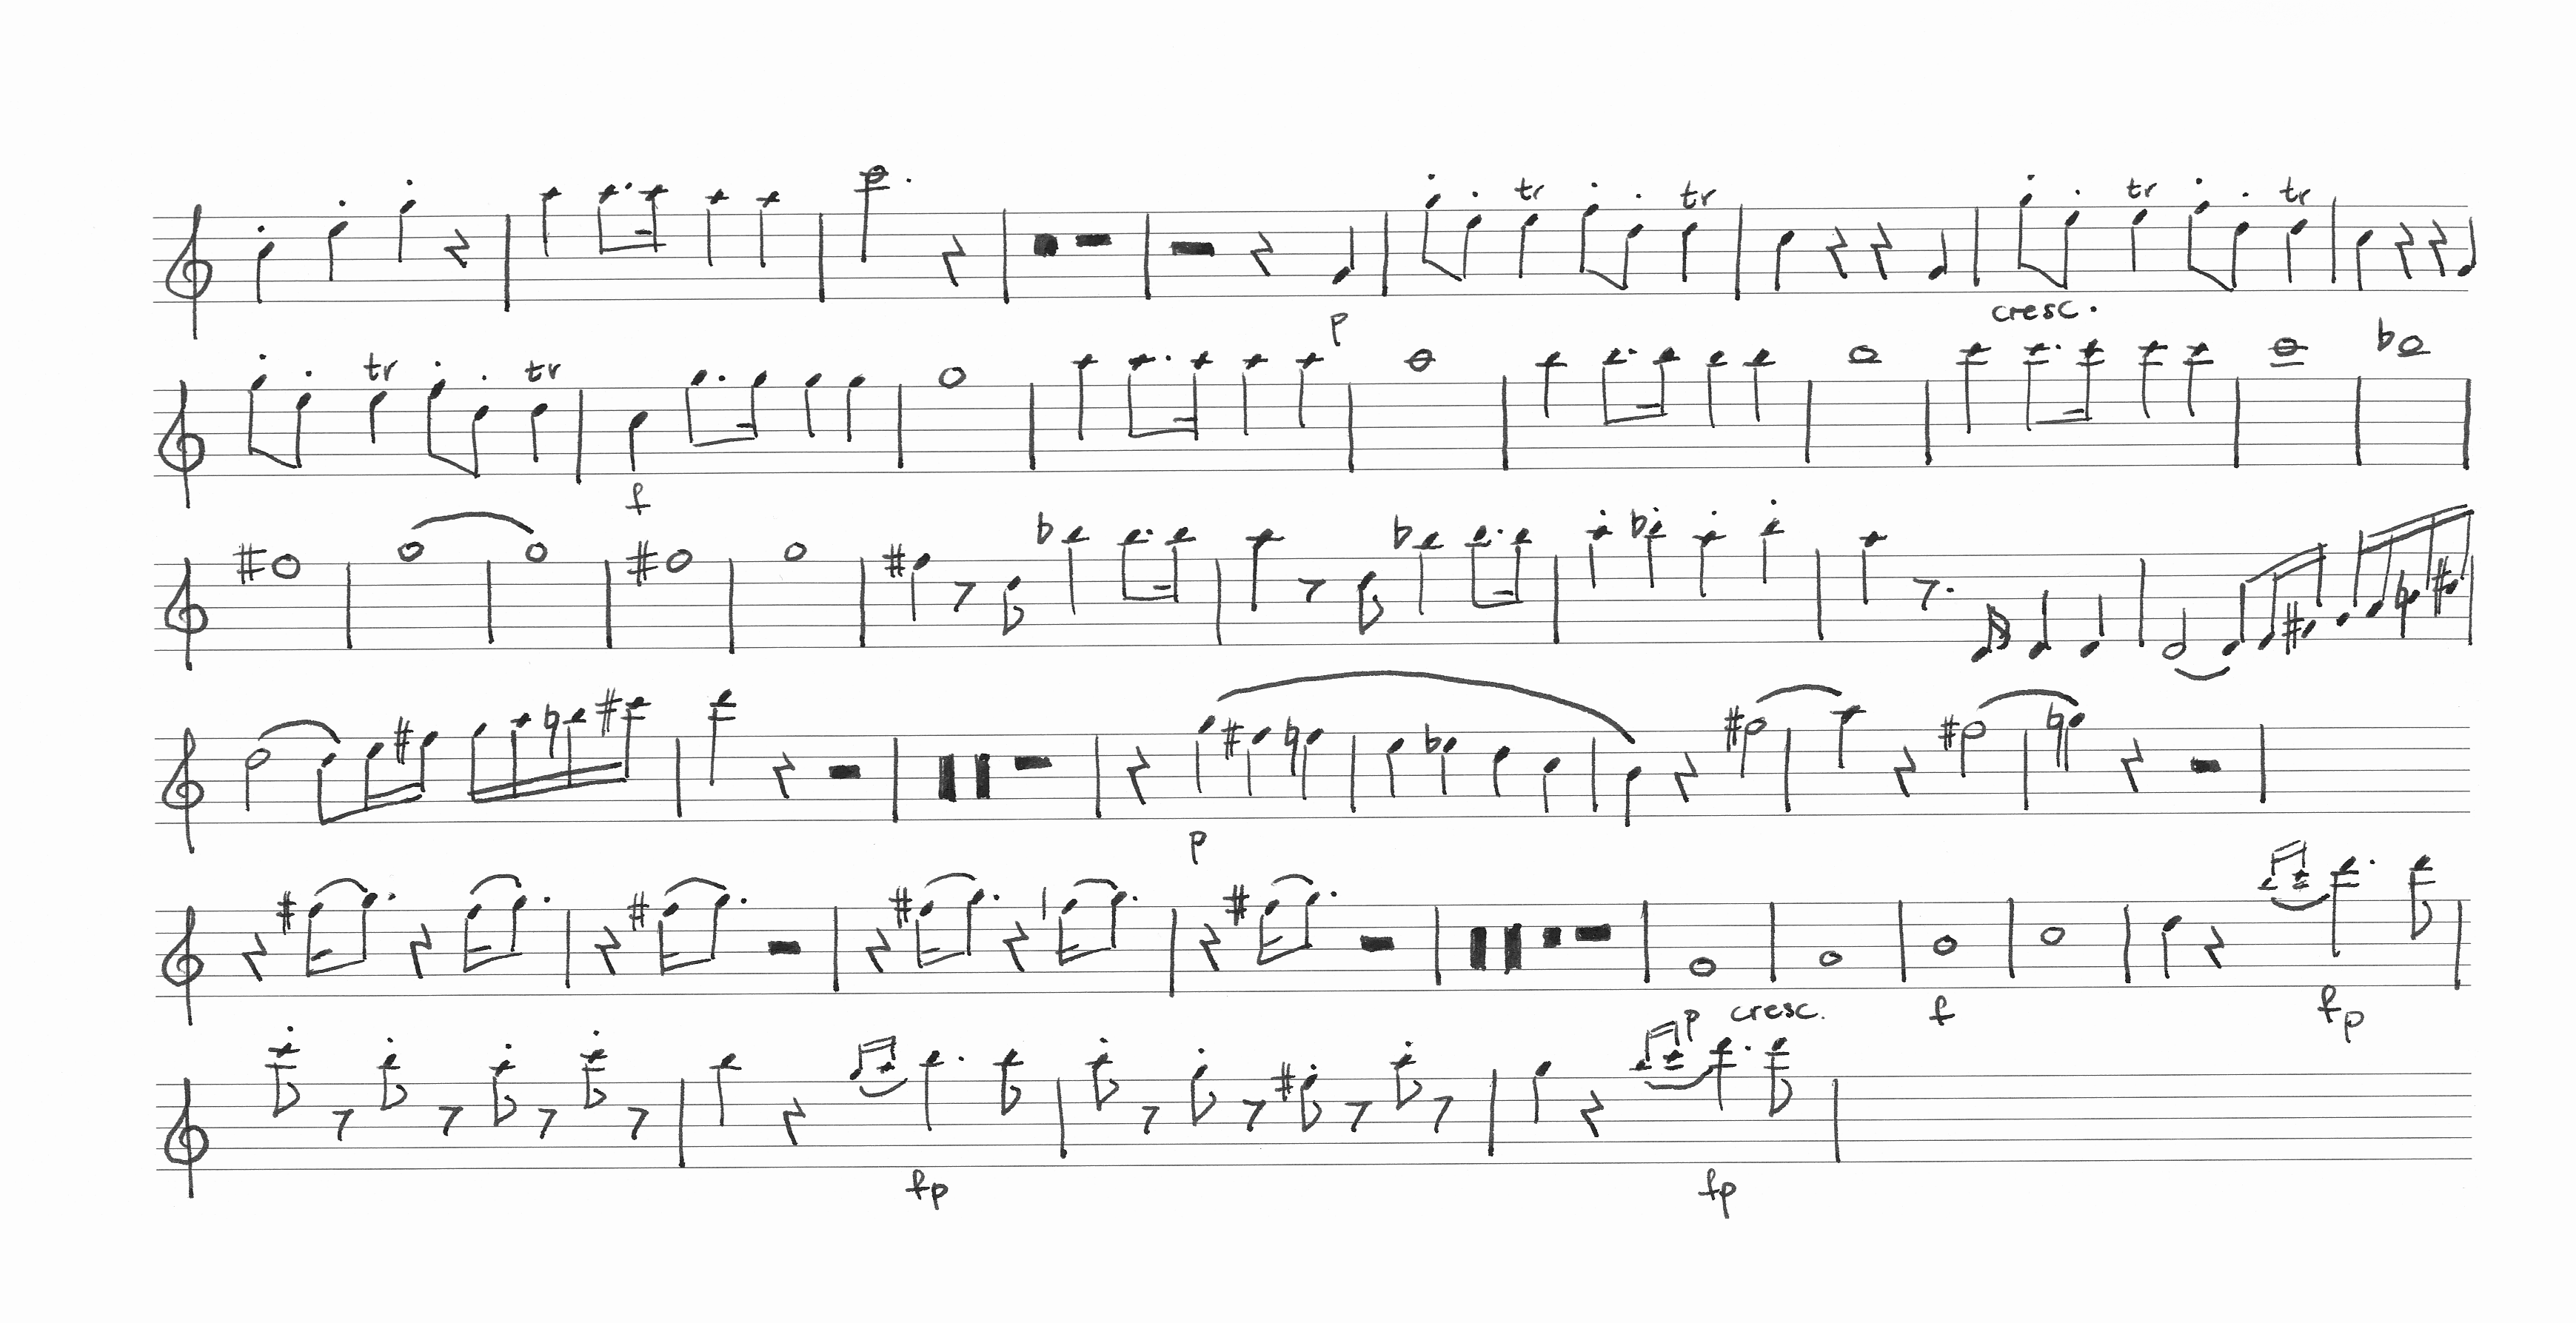 tr tr tr tr
p cresc.
tr tr
f
p
p cresc. f fp
fp fp